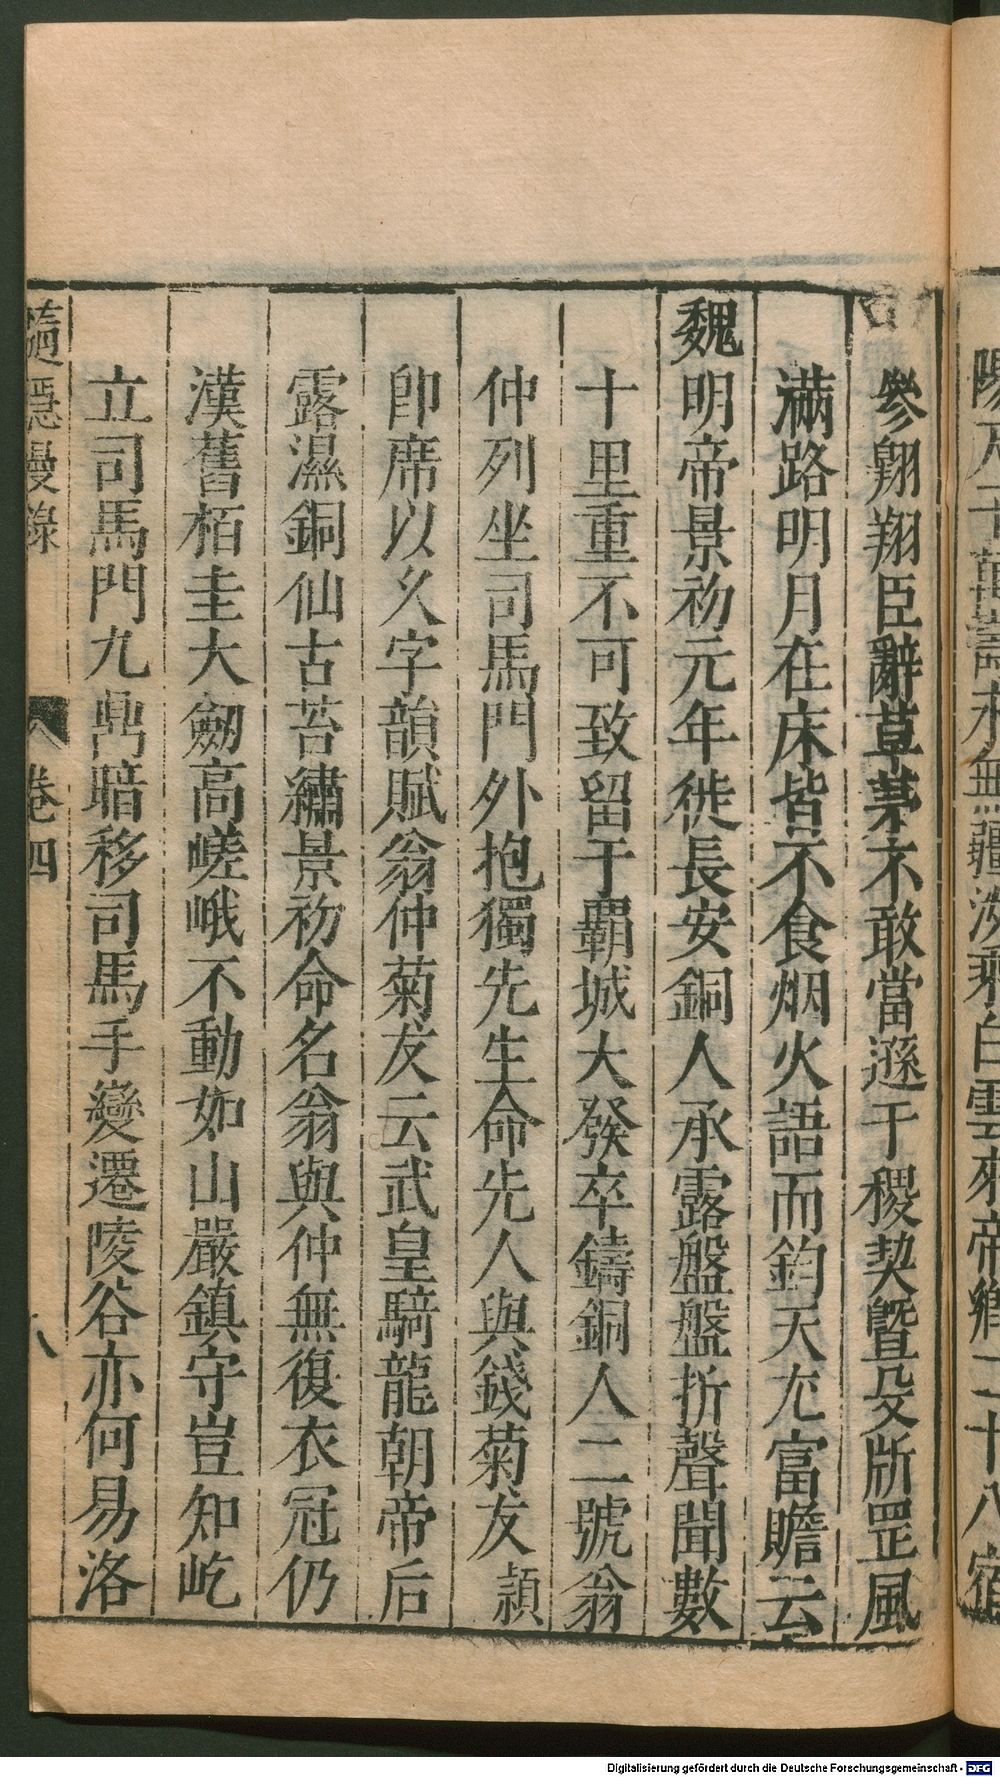 參翺翔臣辭草茅不敢當遜于稷契暨殳斨罡風
滿路明月在床皆不食烟火語而鈞天尤富贍云
魏明帝景初元年徙長安銅人承露盤盤折聲聞數
十里重不可致留于霸城大發卒鑄銅人二號翁
仲列坐司馬門外抱獨先生命先人與錢菊友頴
卽席以久字韻賦翁仲菊友云武皇騎龍朝帝后
露濕銅仙古苔繡景初命名翁與仲無復衣冠仍
漢舊栢圭大劒高嵯峨不動如山嚴鎮守豈知屹
立司馬門九鼎暗移司馬手變遷陵谷亦何易洛
隨隱漫錄
卷四
八
Digitalisierung gefördert durch die Deutsche Forschungsgemeinschaft - DFG